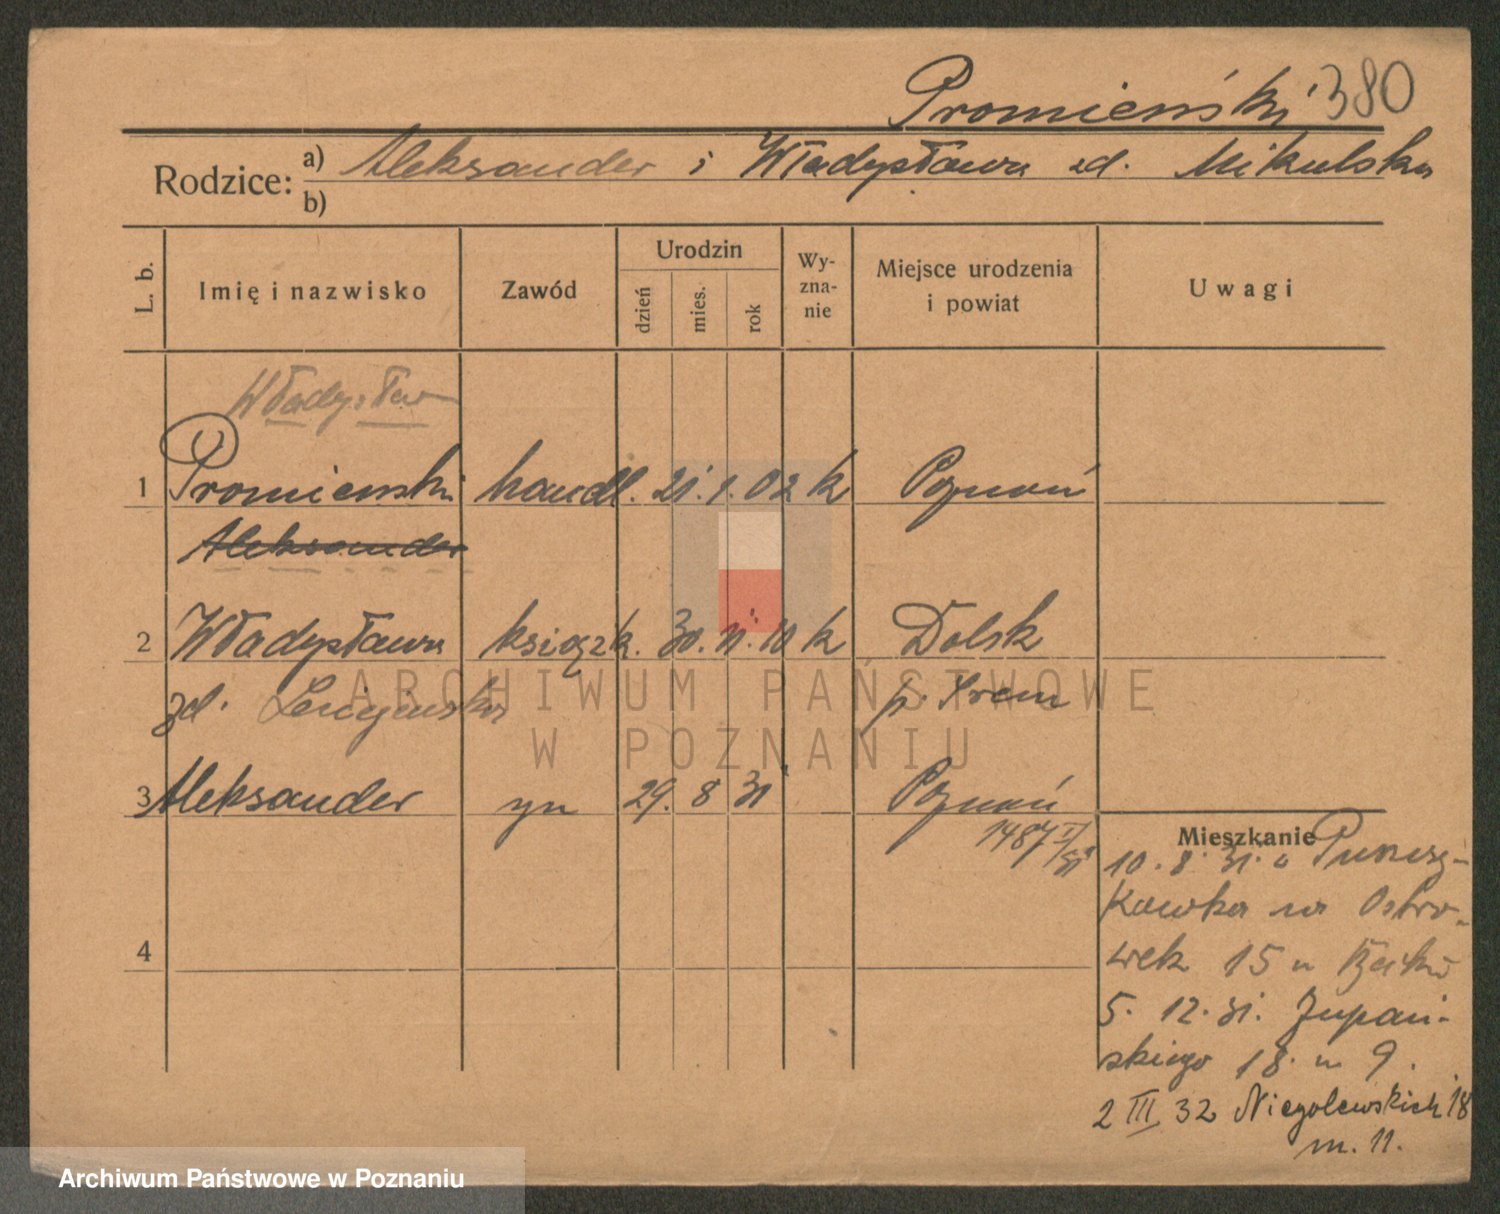 Promieński 380
Rodzice: a) Aleksander i Władysława zd. Mikulska
b)
L. b. Imię i nazwisko Zawód Urodzin dzień mies. rok Wy-zna-nie Miejsce urodzenia i powiat Uwagi
Władysław
1 Promienski handl. 21. 1. 02 k Poznań
Aleksander
2 Władysława książk. 30. 11. 10 k Dolsk
zd. p. Śrem
3 Aleksander syn 29. 8 31 Poznań
1487
Mieszkanie
10. 8. 31. u
na Ostro-
wek 15 u
4
5. 12. 31. Żupań-
skiego 18. m 9.
2 III 32 Niegolewskich 18
m. 11.
ARCHIWUM PAŃSTWOWE
W POZNANIU
Archiwum Państwowe w Poznaniu